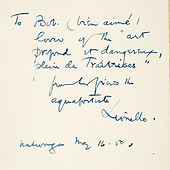 To Bob (bien aimé)
lover of the "art
profond et dangereux,
plein de Traîtrises"
from his friend the
aquafortiste
Lionello.
May 16. 50,